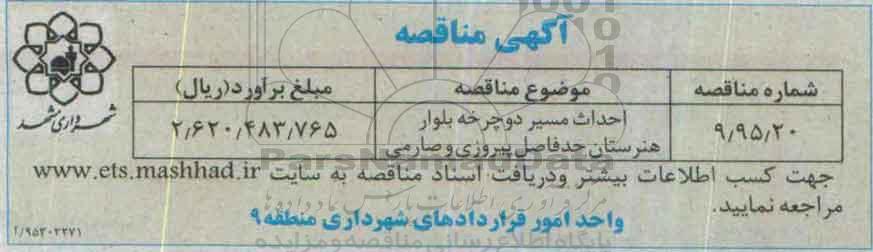 آگهی مناقصه
شهرداری مشهد
شماره مناقصه موضوع مناقصه مبلغ برآورد(ریال)
۹٫۹۵٫۲۰ احداث مسیر دوچرخه بلوار ۲٫۶۲۰٫۴۸۳٫۷۶۵
هنرستان حدفاصل پیروزی و صارمی
ParsNamadData
جهت کسب اطلاعات بیشتر ودریافت اسناد مناقصه به سایت www.ets.mashhad.ir
مراجعه نمایید.
واحد امور قراردادهای شهرداری منطقه۹
پایگاه اطلاع رسانی مناقصه و مزایده